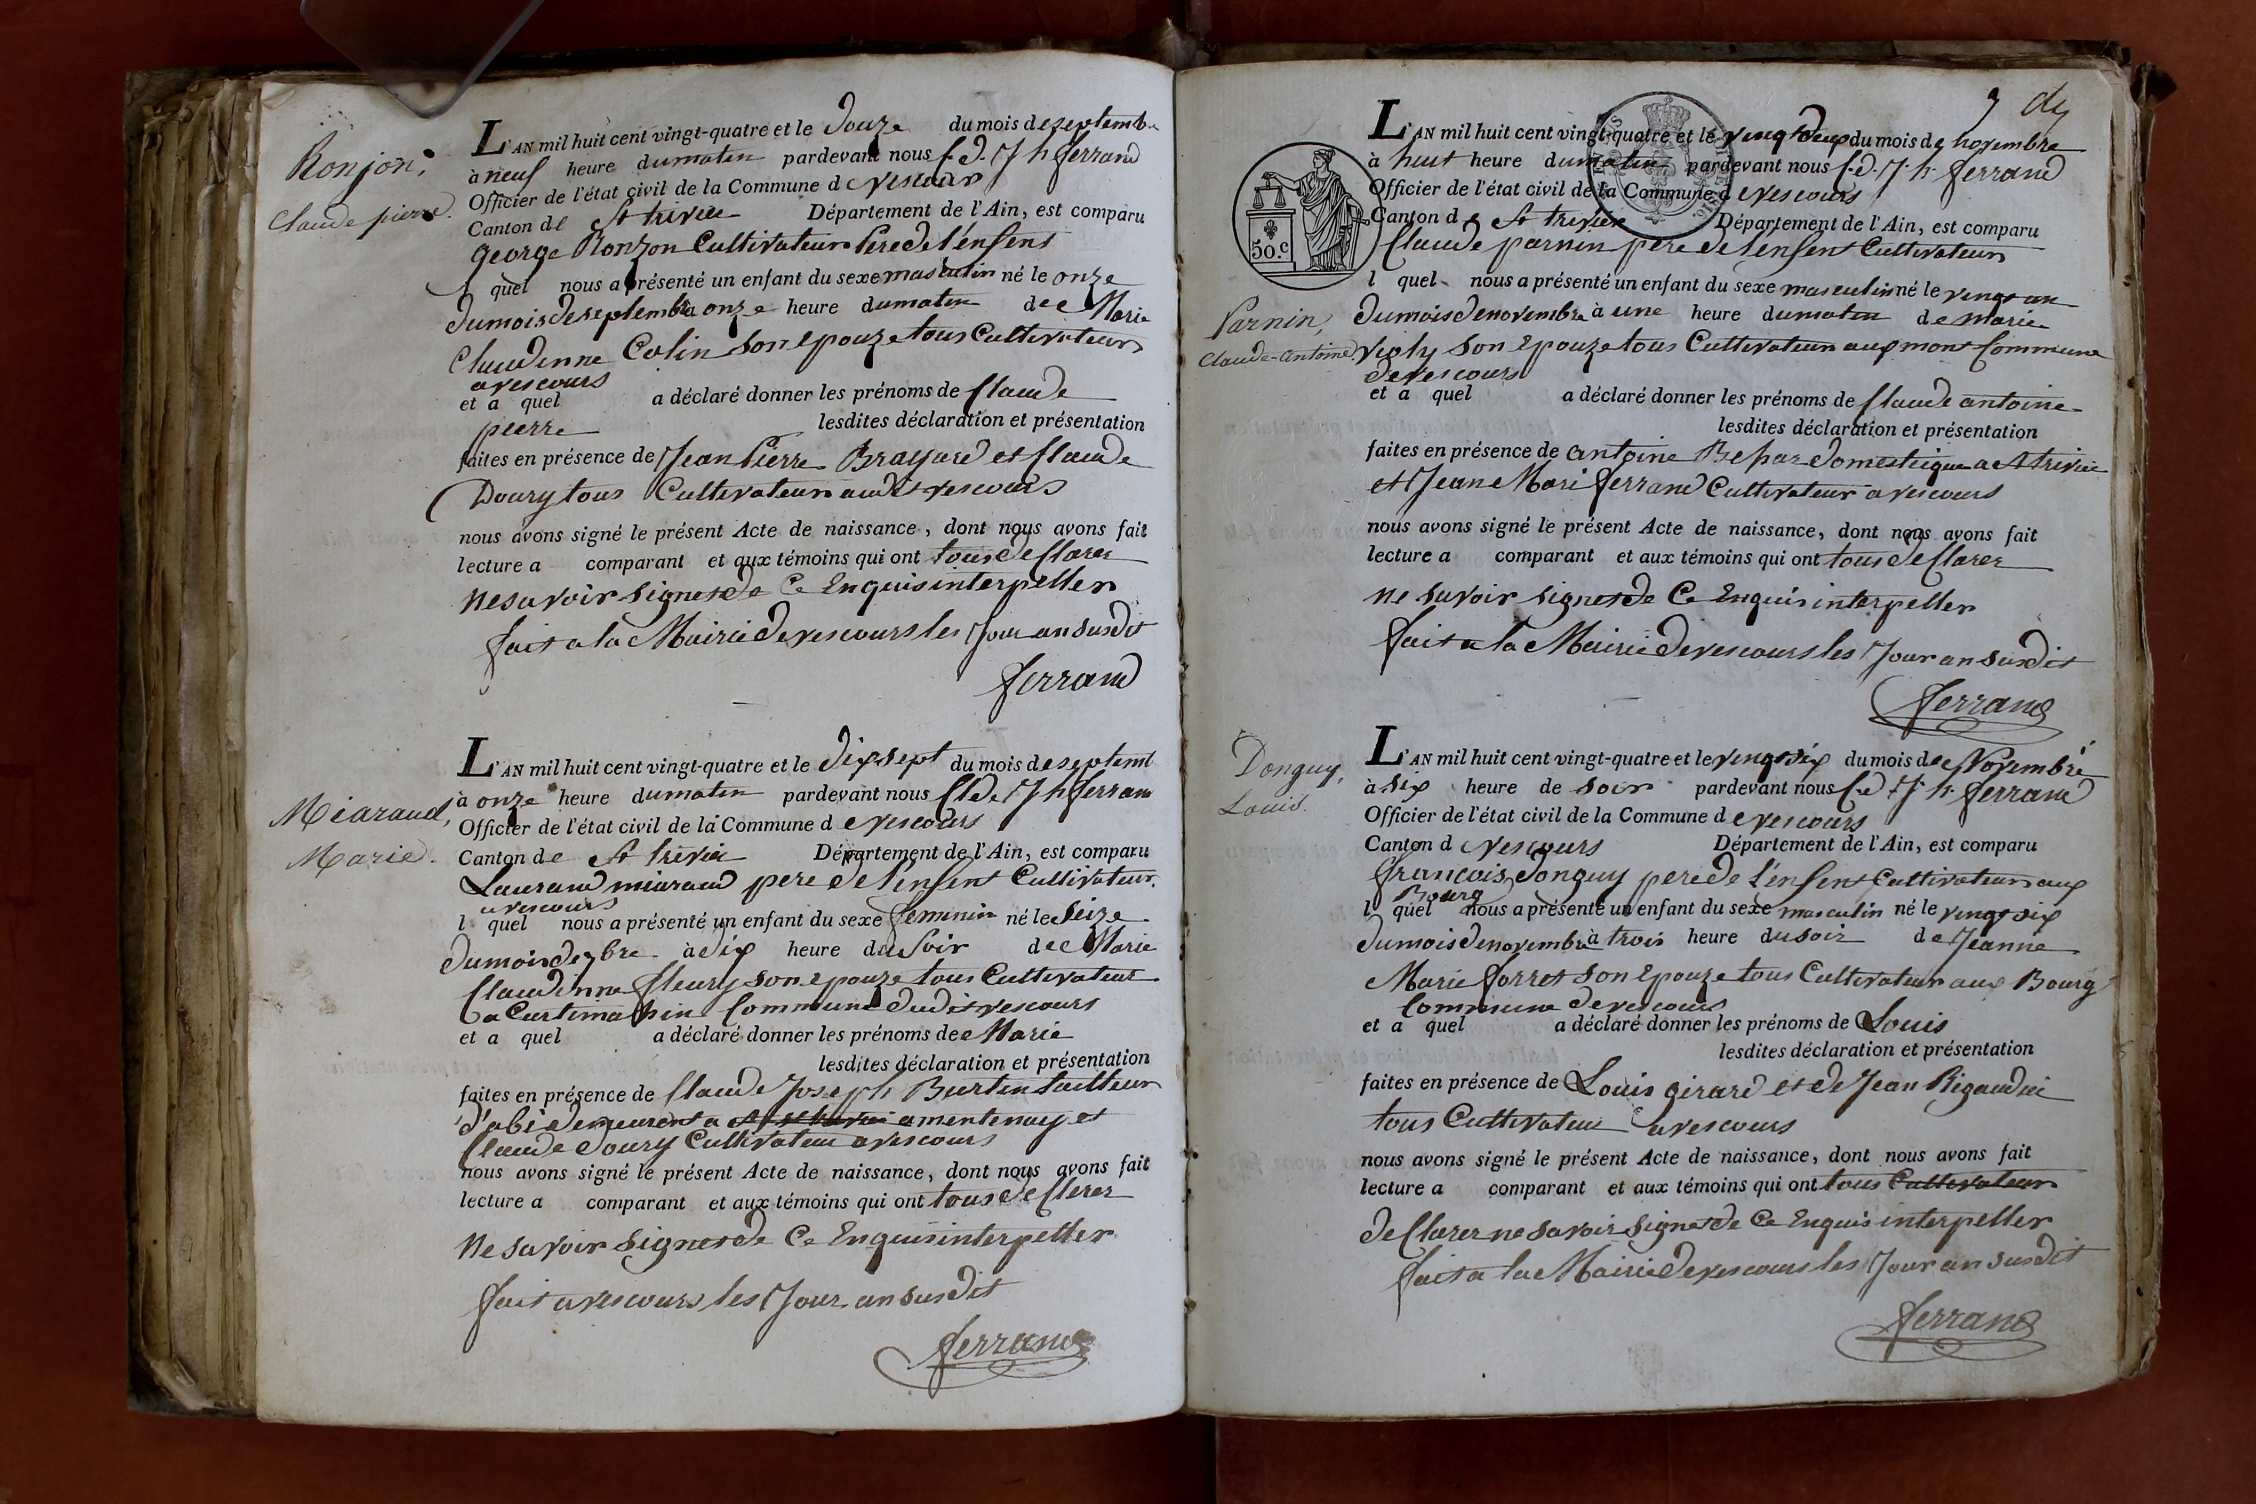 Ronjon,
Claude pierre.
L'AN mil huit cent vingt-quatre et le douze du mois de septemb
à neuf heure du matin pardevant nous f. d. J h ferrand
Officier de l'état civil de la Commune de vescours
Canton de St trivier Département de l'Ain, est comparu
george Ronzon Cultivateur Pere de l'ensent
l quel nous a présenté un enfant du sexe masculin né le onze
du mois de septembre à onze heure du matin de Marie
Claudinne Colin son epouze tous Cultivateur
a vescours
et a quel a déclaré donner les prénoms de Claude
pierre lesdites déclaration et présentation
faites en présence de Jean Pierre Brayard et Claude
Doury tous Cultivateur audit vescours
nous avons signé le présent Acte de naissance, dont nous avons fait
lecture a comparant et aux témoins qui ont tous declarer
ne savoir signer de Ce Enquis interpeller
fait a la Mairie de vescours les Jour an susdit
ferrand
Miaraud,
Marie.
L'AN mil huit cent vingt-quatre et le dix sept du mois de septemb
à onze heure du matin pardevant nous Cl de J h ferrand
Officier de l'état civil de la Commune de vescours
Canton de St trivier Département de l'Ain, est comparu
Laurand miaraud pere de l'ensent Cultivateur
a vescours
l quel nous a présenté un enfant du sexe feminin né le Seize
du mois de 7bre à Six heure du Soir de Marie
Claudinne fleury son epouze tous Cultivateur
a Curtimathin Commune dudit vescours
et a quel a déclaré donner les prénoms de Marie
lesdites déclaration et présentation
faites en présence de Claude Joseph Burtin tailleur
d'abi demeurent a St trivier a mentenay et
Claude Doury Cultivateur a vescours
nous avons signé le présent Acte de naissance, dont nous avons fait
lecture a comparant et aux témoins qui ont tous declerer
ne savoir signer de Ce Enquis interpeller
fait a vescours les Jour an susdit
ferrand
50.c
Parnin,
Claude-antoine.
L'AN mil huit cent vingt-quatre et le vingt deux du mois de novembre
à huit heure du matin pardevant nous f. d. J. h. ferrand
Officier de l'état civil de la Commune de vescours
Canton de St trivier Département de l'Ain, est comparu
Claude parnin pere de l'ensent Cultivateur
l quel nous a présenté un enfant du sexe masculin né le vingt un
du mois de novembre à une heure du matin de marie
violy son epouze tous Cultivateur aux mont Commune
de vescours
et a quel a déclaré donner les prénoms de Claude antoine
lesdites déclaration et présentation
faites en présence de antoine Bepar domestique a St trivier
et Jean Mari ferrand Cultivateur a vescours
nous avons signé le présent Acte de naissance, dont nous avons fait
lecture a comparant et aux témoins qui ont tous declarer
ne savoir signer de Ce Enquis interpeller
fait a la Mairie de vescours les Jour an susdit
ferrand
Donguy,
Louis.
L'AN mil huit cent vingt-quatre et le vingt six du mois de Novembre
à six heure de soir pardevant nous f. d. J. h. ferrand
Officier de l'état civil de la Commune de vescours
Canton de vescours Département de l'Ain, est comparu
francois donguy pere de l'ensent Cultivateur aux
Bourg
l quel nous a présenté un enfant du sexe masculin né le vingt six
du mois de novembre à trois heure du soir de Jeanne
Marie forret son epouze tous Cultivateur aux Bourg
Commune de vescours
et a quel a déclaré donner les prénoms de Louis
lesdites déclaration et présentation
faites en présence de Louis girard et de Jean Rigaudier
tous Cultivateur a vescours
nous avons signé le présent Acte de naissance, dont nous avons fait
lecture a comparant et aux témoins qui ont tous Cultivateur
declarer ne savoir signer de Ce Enquis interpeller
fait a la Mairie de vescours les Jour an susdit
ferrand